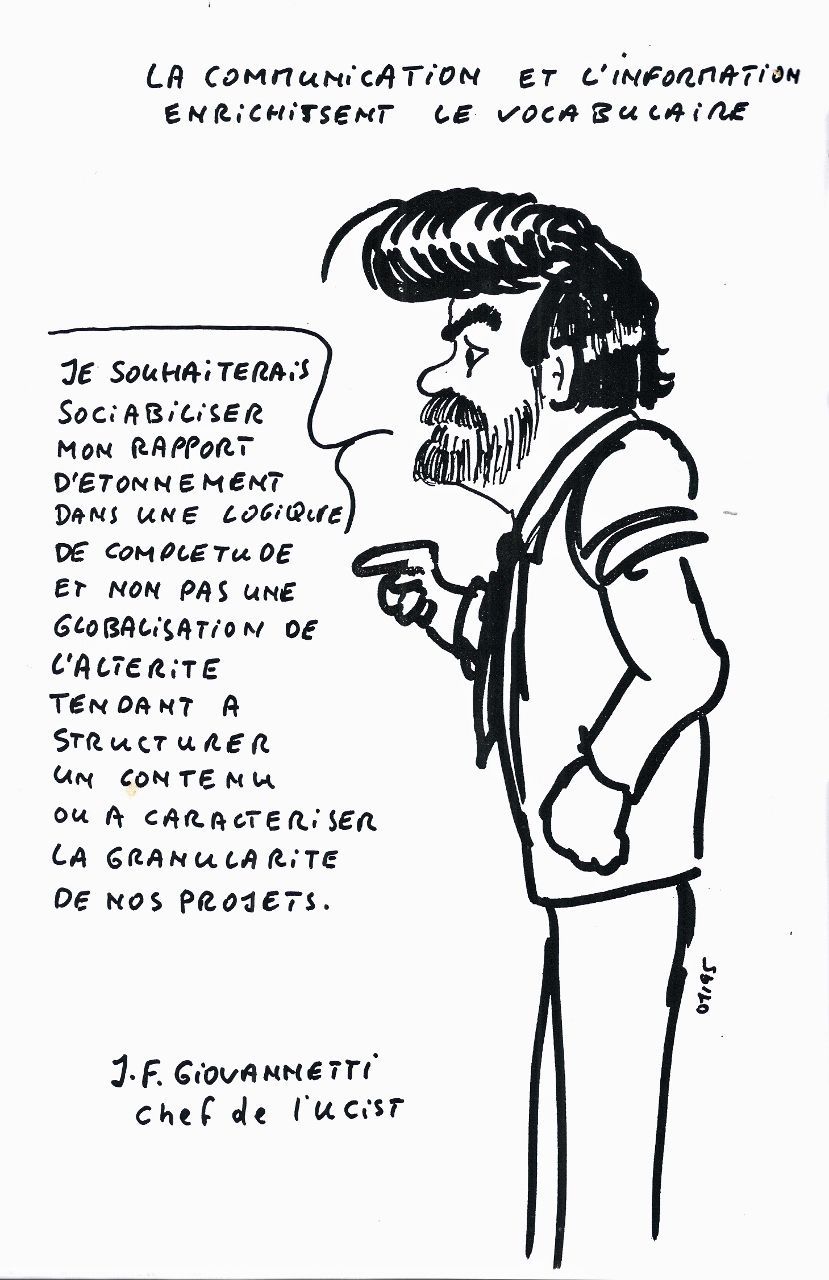 LA COMMUNICATION ET L'INFORMATION
ENRICHISSENT LE VOCABULAIRE
JE SOUHAITERAIS
SOCIABILISER
MON RAPPORT
D'ETONNEMENT
DANS UNE LOGIQUE
DE COMPLETUDE
ET NON PAS UNE
GLOBALISATION DE
L'ALTERITE
TENDANT A
STRUCTURER
UN CONTENU
OU A CARACTERISER
LA GRANULARITE
DE NOS PROJETS.
J.F. GIOVANNETTI
chef de l'UCIST
01/95